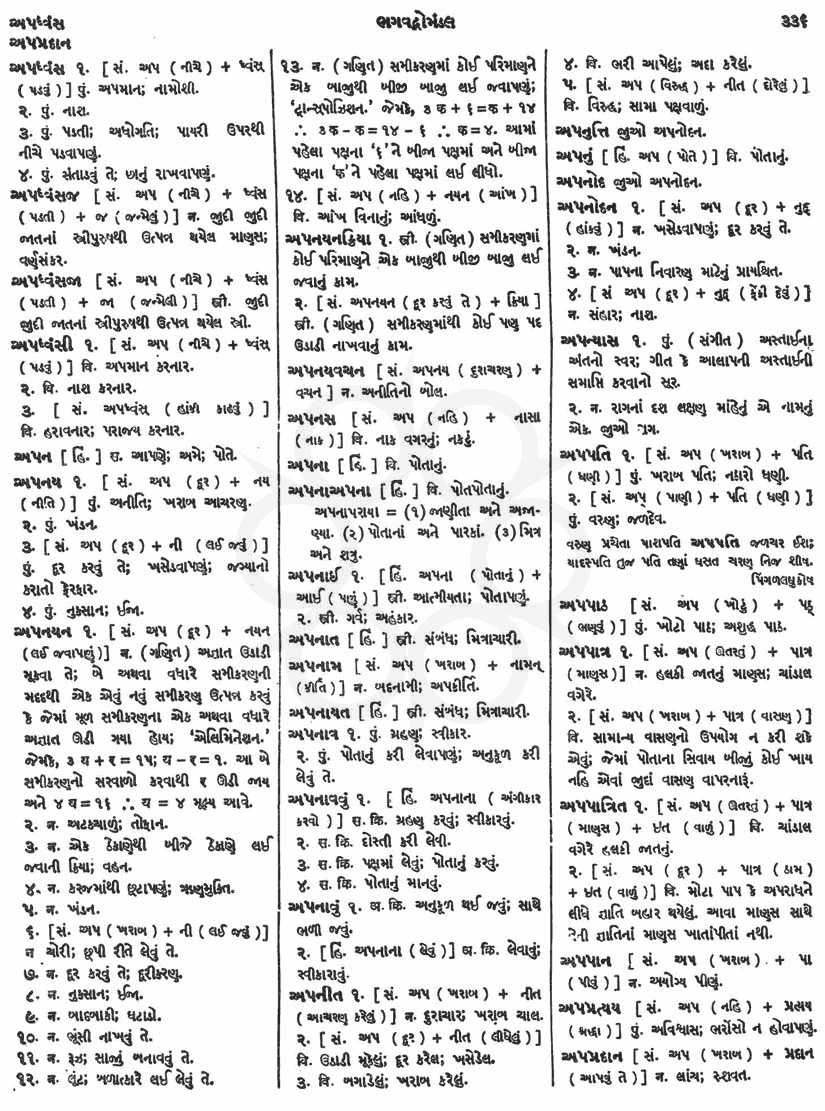 અપધ્વંસ
ભગવદ્ગોમંડલ
૩૩૬
અપપ્રદાન
અપધ્વંસ ૧. [ સં. અપ ( નીચે ) + ધ્વંસ
( પડવું ) ] પું. અપમાન; નામોશી.
૨. પું. નાશ.
૩. પું. પડતી; અધોગતિ; પાયરી ઉપરથી
નીચે પડવાપણું.
૪. પું. સંતાડવું તે; છાનું રાખવાપણું.
અપધ્વંસજ [ સં. અપ ( નીચે ) + ધ્વંસ
( પડતી ) + જ ( જન્મેલું ) ] ન. જુદી જુદી
જાતનાં સ્ત્રીપુરુષથી ઉત્પન્ન થયેલ માણસ;
વર્ણસંકર.
અપધ્વંસજા [ સં. અપ ( નીચે ) + ધ્વંસ
( પડતી ) + જા ( જન્મેલી ) ] સ્ત્રી. જુદી
જુદી જાતનાં સ્ત્રીપુરુષથી ઉત્પન્ન થયેલ સ્ત્રી.
અપધ્વંસી ૧. [ સં. અપ ( નીચે ) + ધ્વંસ
( પડવું ) ] વિ. અપમાન કરનાર.
૨. વિ. નાશ કરનાર.
૩. [ સં. અપધ્વંસ ( હાંકી કાઢવું ) ]
વિ. હરાવનાર; પરાજય કરનાર.
અપન [ હિં. ] સ. આપણે; અમે; પોતે.
અપનય ૧. [ સં. અપ ( દૂર ) + નય
( નીતિ ) ] પું. અનીતિ; ખરાબ આચરણ.
૨. પું. ખંડન.
૩. [ સં. અપ ( દૂર ) + ની ( લઈ જવું ) ]
પું. દૂર કરવું તે; ખસેડવાપણું; જગ્યાનો
કરાતો ફેરફાર.
૪. પું. નુકસાન; ઈજા.
અપનયન ૧. [ સં. અપ ( દૂર ) + નયન
( લઈ જવાપણું ) ] ન. ( ગણિત ) અજ્ઞાત ઉડાડી
મૂકવા તે; બે અથવા વધારે સમીકરણની
મદદથી એક એવું નવું સમીકરણ ઉત્પન્ન કરવું
કે જેમાં મૂળ સમીકરણના એક અથવા વધારે
અજ્ઞાત ઊડી ગયા હોય; ‘એલિમિનેશન.’
જેમકે, ૩ ય + ર = ૧૫; ય – ર = ૧. આ બે
સમીકરણનો સરવાળો કરવાથી ર ઊડી જાય
અને ૪ ય = ૧૬ ∴ ય = ૪ મૂલ્ય આવે.
૨. ન. અટકચાળું; તોફાન.
૩. ન. એક ઠેકાણેથી બીજે ઠેકાણે લઈ
જવાની ક્રિયા; વહન.
૪. ન. કરજમાંથી છુટાપણું; ઋણમુક્તિ.
૫. ન. ખંડન.
૬. [ સં. અપ ( ખરાબ ) + ની ( લઈ જવું ) ]
ન ચોરી; છુપી રીતે લેવું તે.
૭. ન. દૂર કરવું તે; દૂરીકરણ.
૮. ન. નુકસાન; ઈજા.
૯. ન. બાદબાકી; ઘટાડો.
૧૦. ન. ભૂંસી નાખવું તે.
૧૧. ન. રૂઝ; સાજું બનાવવું તે.
૧૨. ન. લૂંટ; બળાત્કારે લઈ લેવું તે.
૧૩. ન. ( ગણિત ) સમીકરણમાં કોઈ પરિમાણને
એક બાજુથી બીજી બાજુ લઈ જવાપણું;
‘ટ્રાન્સપોઝિશન.’ જેમકે, ૩ ક + ૬ = ક + ૧૪
∴ ૩ ક – ક = ૧૪ – ૬ ∴ ક = ૪. આમાં
પહેલા પક્ષના ‘૬’ ને બીજા પક્ષમાં અને બીજા
પક્ષના ‘ક’ ને પહેલા પક્ષમાં લઈ લીધો.
૧૪. [ સં. અપ ( નહિ ) + નયન ( આંખ ) ]
વિ. આંખ વિનાનું; આંધળું.
અપનયનક્રિયા ૧. સ્ત્રી. ( ગણિત ) સમીકરણમાં
કોઈ પરિમાણને એક બાજુથી બીજી બાજુ લઈ
જવાનું કામ.
૨. [ સં. અપનયન ( દૂર કરવું તે ) + ક્રિયા ]
સ્ત્રી. ( ગણિત ) સમીકરણમાંથી કોઈ પણ પદ
ઉડાડી નાખવાનું કામ.
અપનયવચન [ સં. અપનય ( દુરાચરણ ) +
વચન ] ન. અનીતિનો બોલ.
અપનસ [ સં. અપ ( નહિ ) + નાસા
( નાક ) ] વિ. નાક વગરનું; નકટું.
અપના [ હિં. ] વિ. પોતાનું.
અપનાઅપના [ હિં. ] વિ. પોતપોતાનું.
અપનાપરાયા = (૧) જાણીતા અને અજા-
ણ્યા. (૨) પોતાનાં અને પારકાં. (૩) મિત્ર
અને શત્રુ.
અપનાઈ ૧. [ હિં. અપના ( પોતાનું ) +
આઈ ( પણું ) ] સ્ત્રી. આત્મીયતા; પોતાપણું.
૨. સ્ત્રી. ગર્વ; અહંકાર.
અપનાત [ હિં. ] સ્ત્રી. સંબંધ; મિત્રાચારી.
અપનામ [ સં. અપ ( ખરાબ ) + નામન્
( કીર્તિ ) ] ન. બદનામી; અપકીર્તિ.
અપનાયત [ હિં. ] સ્ત્રી. સંબંધ; મિત્રાચારી.
અપનાવ ૧. પું. ગ્રહણ; સ્વીકાર.
૨. પું. પોતાનું કરી લેવાપણું; અનુકૂળ કરી
લેવું તે.
અપનાવવું ૧. [ હિં. અપનાના ( અંગીકાર
કરવો ) ] સ. ક્રિ. ગ્રહણ કરવું; સ્વીકારવું.
૨. સ. ક્રિ. દોસ્તી કરી લેવી.
૩. સ. ક્રિ. પક્ષમાં લેવું; પોતાનું કરવું.
૪. સ. ક્રિ. પોતાનું માનવું.
અપનાવું ૧. અ. ક્રિ. અનુકૂળ થઈ જવું; સાથે
ભળી જવું.
૨. [ હિં. અપનાના ( લેવું ) ] અ. ક્રિ. લેવાવું;
સ્વીકારાવું.
અપનીત ૧. [ સં. અપ ( ખરાબ ) + નીત
( આચરણ કરેલું ) ] ન. દુરાચાર; ખરાબ ચાલ.
૨. [ સં. અપ ( દૂર ) + નીત ( લીધેલું ) ]
વિ. ઉઠાડી મૂકેલું; દૂર કરેલ; ખસેડેલ.
૩. વિ. બગાડેલું; ખરાબ કરેલું.
૪. વિ. ભરી આપેલું; અદા કરેલું.
૫. [ સં. અપ ( વિરુદ્ધ ) + નીત ( દોરેલું ) ]
વિ. વિરુદ્ધ; સામા પક્ષવાળું.
અપનુત્તિ જુઓ અપનોદન.
અપનું [ હિં. અપ ( પોતે ) ] વિ. પોતાનું.
અપનોદ જુઓ અપનોદન.
અપનોદન ૧. [ સં. અપ ( દૂર ) + નુદ્
( હાંકવું ) ] ન. ખસેડવાપણું; દૂર કરવું તે.
૨. ન. ખંડન.
૩. ન. પાપના નિવારણ માટેનું પ્રાયશ્ચિત.
૪. [ સં અપ ( દૂર ) + નુદ્ ( ફેંકી દેવું ) ]
ન. સંહાર; નાશ.
અપન્યાસ ૧. પું. ( સંગીત ) અસ્તાઈના
અંતનો સ્વર; ગીત કે આલાપની અસ્તાઈની
સમાપ્તિ કરવાનો સૂર.
૨. ન. રાગનાં દશ લક્ષણ માંહેનું એ નામનું
એક. જુઓ રાગ.
અપપતિ ૧. [ સં. અપ ( ખરાબ ) + પતિ
( ધણી ) ] પું. ખરાબ પતિ; નઠારો ધણી.
૨. [ સં. અપ્ ( પાણી ) + પતિ ( ધણી ) ]
પું. વરુણ; જળદેવ.
વરુણ પ્રચેતા પાશપતિ અપપતિ જળચર ઈશ;
યાદસ્પતિ તુજ પતિ તણાં ધસત ચરણ નિજ શીષ.
પિંગળલઘુકોષ
અપપાઠ [ સં. અપ ( ખોટું ) + પઠ્
( ભણવું ) ] પું. ખોટો પાઠ; અશુદ્ધ પાઠ.
અપપાત્ર ૧. [ સં. અપ ( ઊતરતું ) + પાત્ર
( માણસ ) ] ન. હલકી જાતનું માણસ; ચાંડાલ
વગેરે.
૨. [ સં. અપ ( ખરાબ ) + પાત્ર ( વાસણ ) ]
વિ. સામાન્ય વાસણનો ઉપયોગ ન કરી શકે
એવું; જેમાં પોતાના સિવાય બીજું કોઈ ખાય
નહિ એવાં જુદાં વાસણ વાપરનારૂં.
અપપાત્રિત ૧. [ સં. અપ ( ઊતરતું ) + પાત્ર
( માણસ ) + ઇત ( વાળું ) ] વિ. ચાંડાલ
વગેરે હલકી જાતનું.
૨. [ સં. અપ ( દૂર ) + પાત્ર ( ઠામ )
+ ઇત ( વાળું ) ] વિ. મોટા પાપ કે અપરાધને
લીધે જ્ઞાતિ બહાર થયેલું. આવા માણસ સાથે
તેની જ્ઞાતિનાં માણસ ખાતાંપીતાં નથી.
અપપાન [ સં. અપ ( ખરાબ ) + પા
( પીવું ) ] ન. અયોગ્ય પીણું.
અપપ્રત્યય [ સં. અપ ( નહિ ) + પ્રત્યય
( શ્રદ્ધા ) ] પું. અવિશ્વાસ; ભરોંસો ન હોવાપણું.
અપપ્રદાન [ સં. અપ ( ખરાબ ) + પ્રદાન
( આપવું તે ) ] ન. લાંચ; રુશવત.